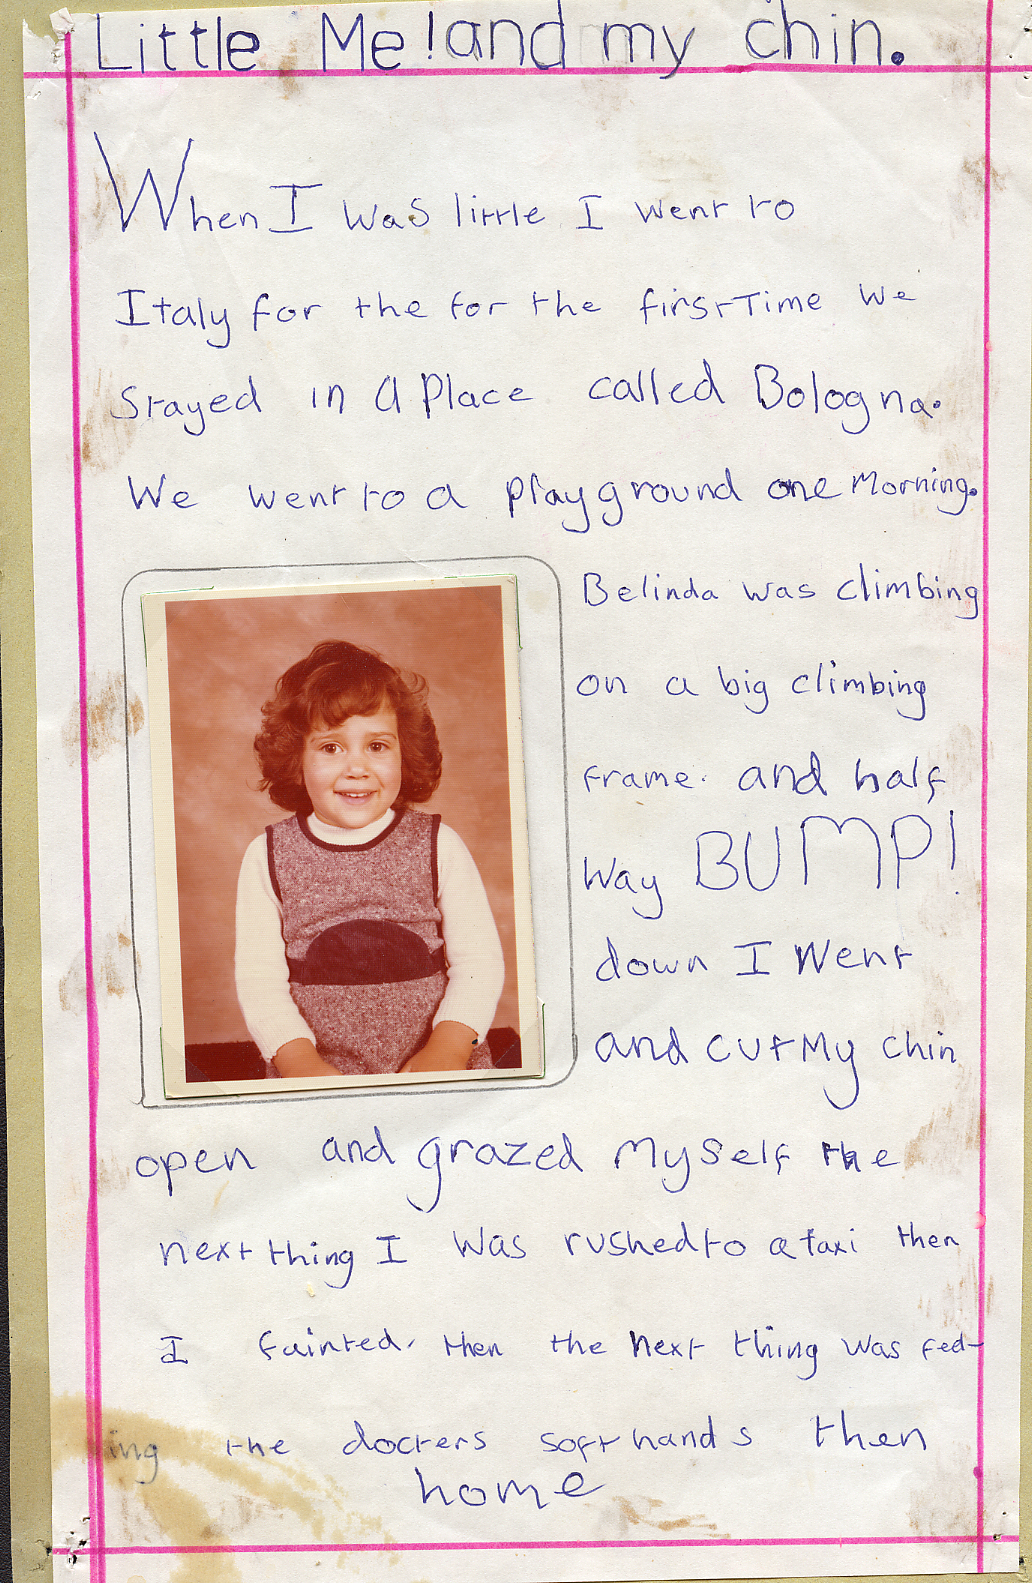 Little Me! and my chin.
When I was little I went to
Italy for the for the first Time we
stayed in a Place called Bologna.
We went to a playground one Morning.
Belinda was climbing
on a big climbing
frame. and half
way BUMP!
down I went
and cut My chin
open and grazed Myself the
next thing I was rushed to a taxi then
I fainted. then the next thing was feed-
ing the docters soft hands then
home